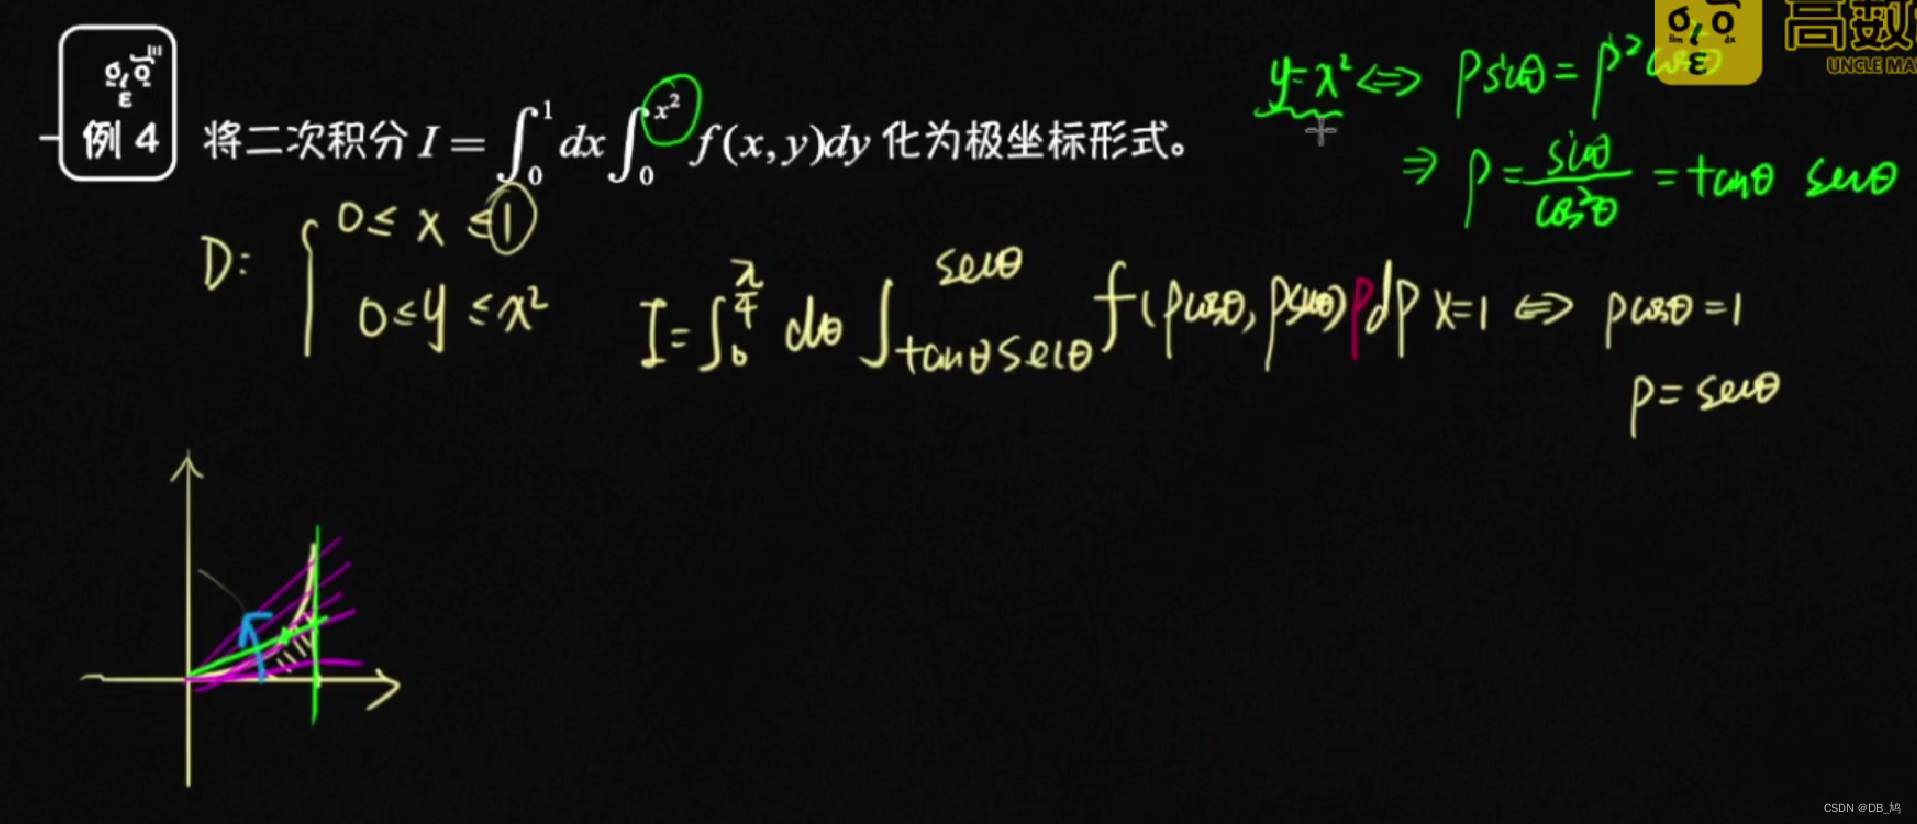 高数
UNCLE MA
例 4 将二次积分 I = ∫₀¹ dx ∫₀^{x²} f(x, y)dy 化为极坐标形式。
y=x² ⇔ ρ sinθ = ρ² cos²θ
⇒ ρ = sinθ/cos²θ = tanθ secθ
D: { 0 ≤ x ≤ 1
0 ≤ y ≤ x²
I = ∫₀^{π/4} dθ ∫_{tanθ secθ}^{secθ} f(ρcosθ, ρsinθ) ρ dρ
x=1 ⇔ ρcosθ = 1
ρ = secθ
CSDN @DB_鸠